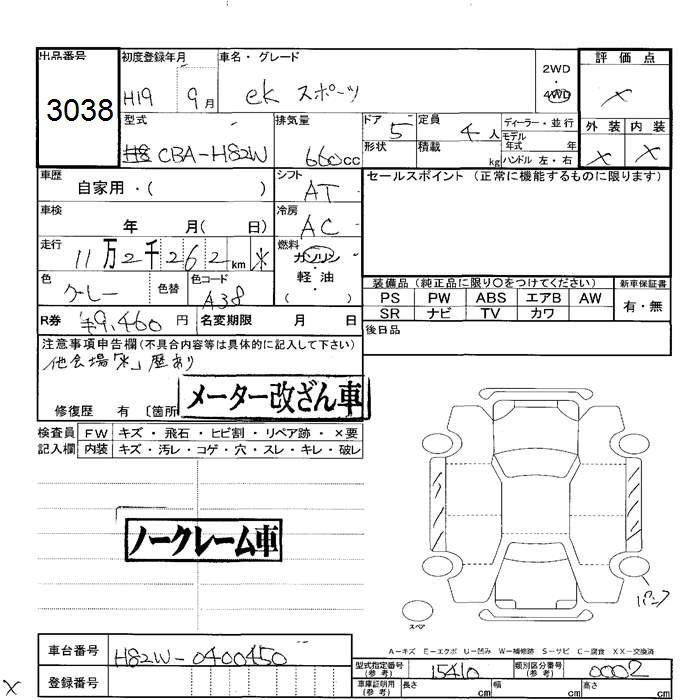 出品番号 初度登録年月 車名・グレード 2WD 評価点
3038 H19 9月 ek スポーツ 4WD ×
型式 排気量 ドア 5 定員 4人 ディーラー・並行 外装 内装
CBA-H82W 660cc 形状 積載 kg モデル年式 年 × ×
ハンドル 左・右
車歴 シフト セールスポイント (正常に機能するものに限ります)
自家用・( ) AT
車検 冷房
年 月( 日) AC
走行 燃料
11万2千262km * ガソリン
軽・油
色 色替 色コード ( ) 装備品 (純正品に限り○をつけてください) 新車保証書
グレー A38 PS PW ABS エアB AW 有・無
SR ナビ TV カワ
R券 ¥9,460円 名変期限 月 日 後日品
注意事項申告欄(不具合内容等は具体的に記入して下さい)
他会場「*」歴あり
メーター改ざん車
修復歴 有 〔箇所
検査員 FW キズ・飛石・ヒビ割・リペア跡・×要
記入欄 内装 キズ・汚レ・コゲ・穴・スレ・キレ・破レ
ノークレーム車
パンク
スペア
A-キズ E-エクボ U-凹み W-補修跡 S-サビ C-腐食 XX-交換済
車台番号 H82W-0400450 型式指定番号(参考) 15410 類別区分番号(参考) 0002
登録番号 車庫証明用(参考) 長さ cm 幅 cm 高さ cm
×